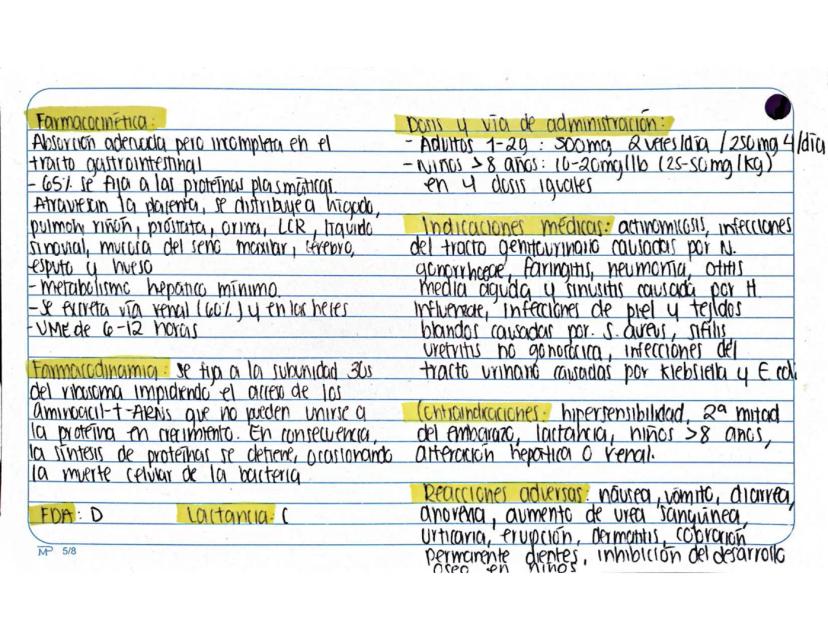 Farmacocinética:
Absorción adecuada pero incompleta en el
tracto gastrointestinal
- 65% se fija a las proteínas plasmáticas.
Atraviesan la placenta, se distribuye a hígado,
pulmón, riñón, próstata, orina, LCR, líquido
sinovial, mucosa del seno maxilar, cerebro,
esputo y hueso
- metabolismo hepático mínimo.
- Se excreta vía renal (60%) y en las heces
- VME de 6-12 horas
Farmacodinamia: se fija a la subunidad 30s
del ribosoma impidiendo el acceso de los
aminoacil-t-ARNs que no pueden unirse a
la proteína en crecimiento. En consecuencia,
la síntesis de proteínas se detiene, ocasionando
la muerte celular de la bacteria
FDA: D Lactancia: C
MP 5/8
Dosis y vía de administración:
- Adultos 1-2g : 500mg 2 veces/día / 250mg 4/día
- Niños >8 años: 10-20mg/lb (25-50mg/kg)
en 4 dosis iguales
Indicaciones médicas: actinomicosis, infecciones
del tracto genitourinario causadas por N.
gonorrhoeae, faringitis, neumonía, otitis
media aguda y sinusitis causada por H.
Influenzae, infecciones de piel y tejidos
blandos causadas por. S. aureus, sífilis
uretritis no gonocócica, infecciones del
tracto urinario causadas por Klebsiella y E. coli
Contraindicaciones: hipersensibilidad, 2ª mitad
del embarazo, lactancia, niños >8 años,
alteración hepática o renal.
Reacciones adversas: náusea, vómito, diarrea,
anorexia, aumento de urea sanguínea,
urticaria, erupción, dermatitis, coloración
permanente dientes, inhibición del desarrollo
óseo en niños